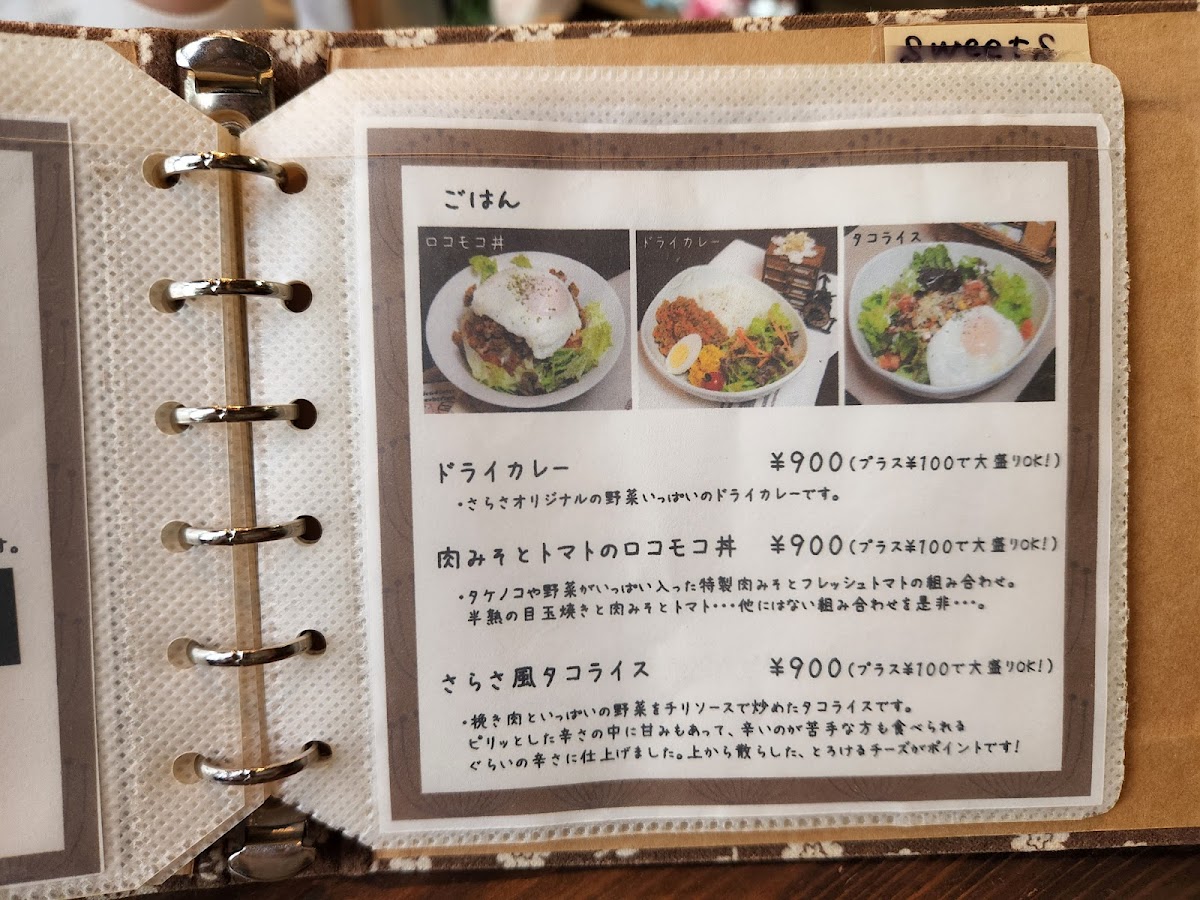 sweets
ごはん
ロコモコ丼
ドライカレー
タコライス
ドライカレー ¥900(プラス¥100で大盛りOK!)
・さらさオリジナルの野菜いっぱいのドライカレーです。
肉みそとトマトのロコモコ丼 ¥900(プラス¥100で大盛りOK!)
・タケノコや野菜がいっぱい入った特製肉みそとフレッシュトマトの組み合わせ。
半熟の目玉焼きと肉みそとトマト･･･他にはない組み合わせを是非･･･。
さらさ風タコライス ¥900(プラス¥100で大盛りOK!)
・挽き肉といっぱいの野菜をチリソースで炒めたタコライスです。
ピリッとした辛さの中に甘みもあって、辛いのが苦手な方も食べられる
ぐらいの辛さに仕上げました。上から散らした、とろけるチーズがポイントです!
す。